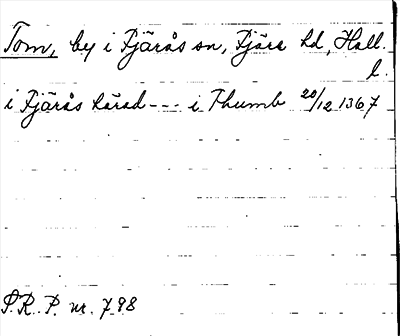 Tom, by i Fjärås sn, Fjäre hd, Hall.
l.
i Fjärås härad --- i Thumb 20/12 1367
S.R.P. nr. 798